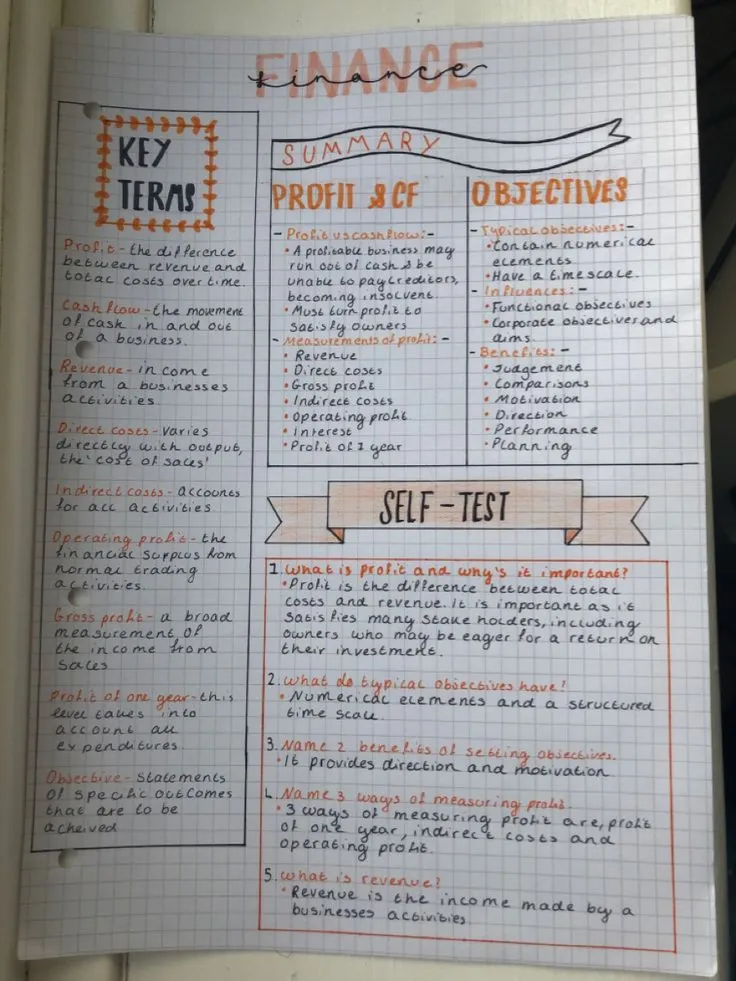 FINANCE
finance
KEY
TERMS
Profit - the difference
between revenue and
total costs over time.
Cash flow - the movement
of cash in and out
of a business.
Revenue - income
from a businesses
activities.
Direct costs - varies
directly with output,
the 'cost of sales'
Indirect costs - accounts
for all activities
Operating profit - the
financial surplus from
normal trading
activities.
Gross profit - a broad
measurement of
the income from
sales
Profit of one year - this
level takes into
account all
expenditures.
Objective - statements
of specific outcomes
that are to be
acheived
SUMMARY
PROFIT & CF
- Profit vs cash flow:-
• A profitable business may
run out of cash & be
unable to pay creditors,
becoming insolvent.
• Must turn profit to
satisfy owners
- Measurements of profit:-
• Revenue
• Direct costs
• Gross profit
• Indirect costs
• Operating profit
• Interest
• Profit of 1 year
OBJECTIVES
- Typical objectives:-
• Contain numerical
elements
• Have a timescale.
- Influences:-
• Functional objectives
• Corporate objectives and
aims.
- Benefits:-
• Judgement
• Comparisons
• Motivation
• Direction
• Performance
• Planning
SELF-TEST
1. What is profit and why's it important?
• Profit is the difference between total
costs and revenue. It is important as it
satisfies many stake holders, including
owners who may be eager for a return on
their investment.
2. What do typical objectives have?
• Numerical elements and a structured
time scale.
3. Name 2 benefits of setting objectives.
• It provides direction and motivation
4. Name 3 ways of measuring profit.
• 3 ways of measuring profit are, profit
of one year, indirect costs and
operating profit.
5. What is revenue?
• Revenue is the income made by a
businesses activities.